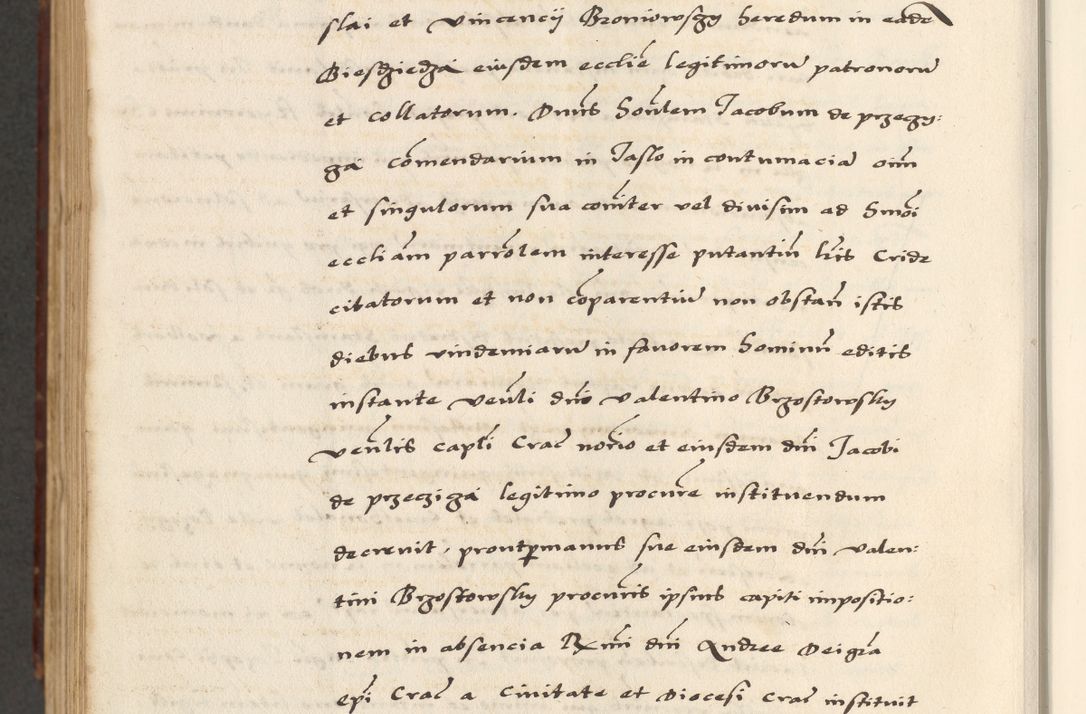 slai et Vincencÿ Broniowsgy heredum in eade
Biesdziedzá eiusdem ecclīe legitimorū patronorū
et collatorum. Dnūs honlem Jacobum de przeczy:
gá cōmendarium in Jaslo in contumaciā oīm
et singulorum sua comīter vel divisim ad hmōi
eccliam parrōlem interesse putantiū lrīs Cridē
citatorum et non cōparentiū non obstañ istis
diebus vindemiarū in favorem hominū editis
instante venli dno Valentino Brzostowsky
venlis capli Crač norio et eiusdem dnī Jacobi
de przeczigá legitimo procure instituendum
decrevit, prout per manus sue eiusdem dnī Valen:
tini Brzostowsky procuris ipsius capiti impositio:
nem in absencia Rmi dnī Andree Dei gra
epī Crač a Civitate et Diocesi Crač instituit